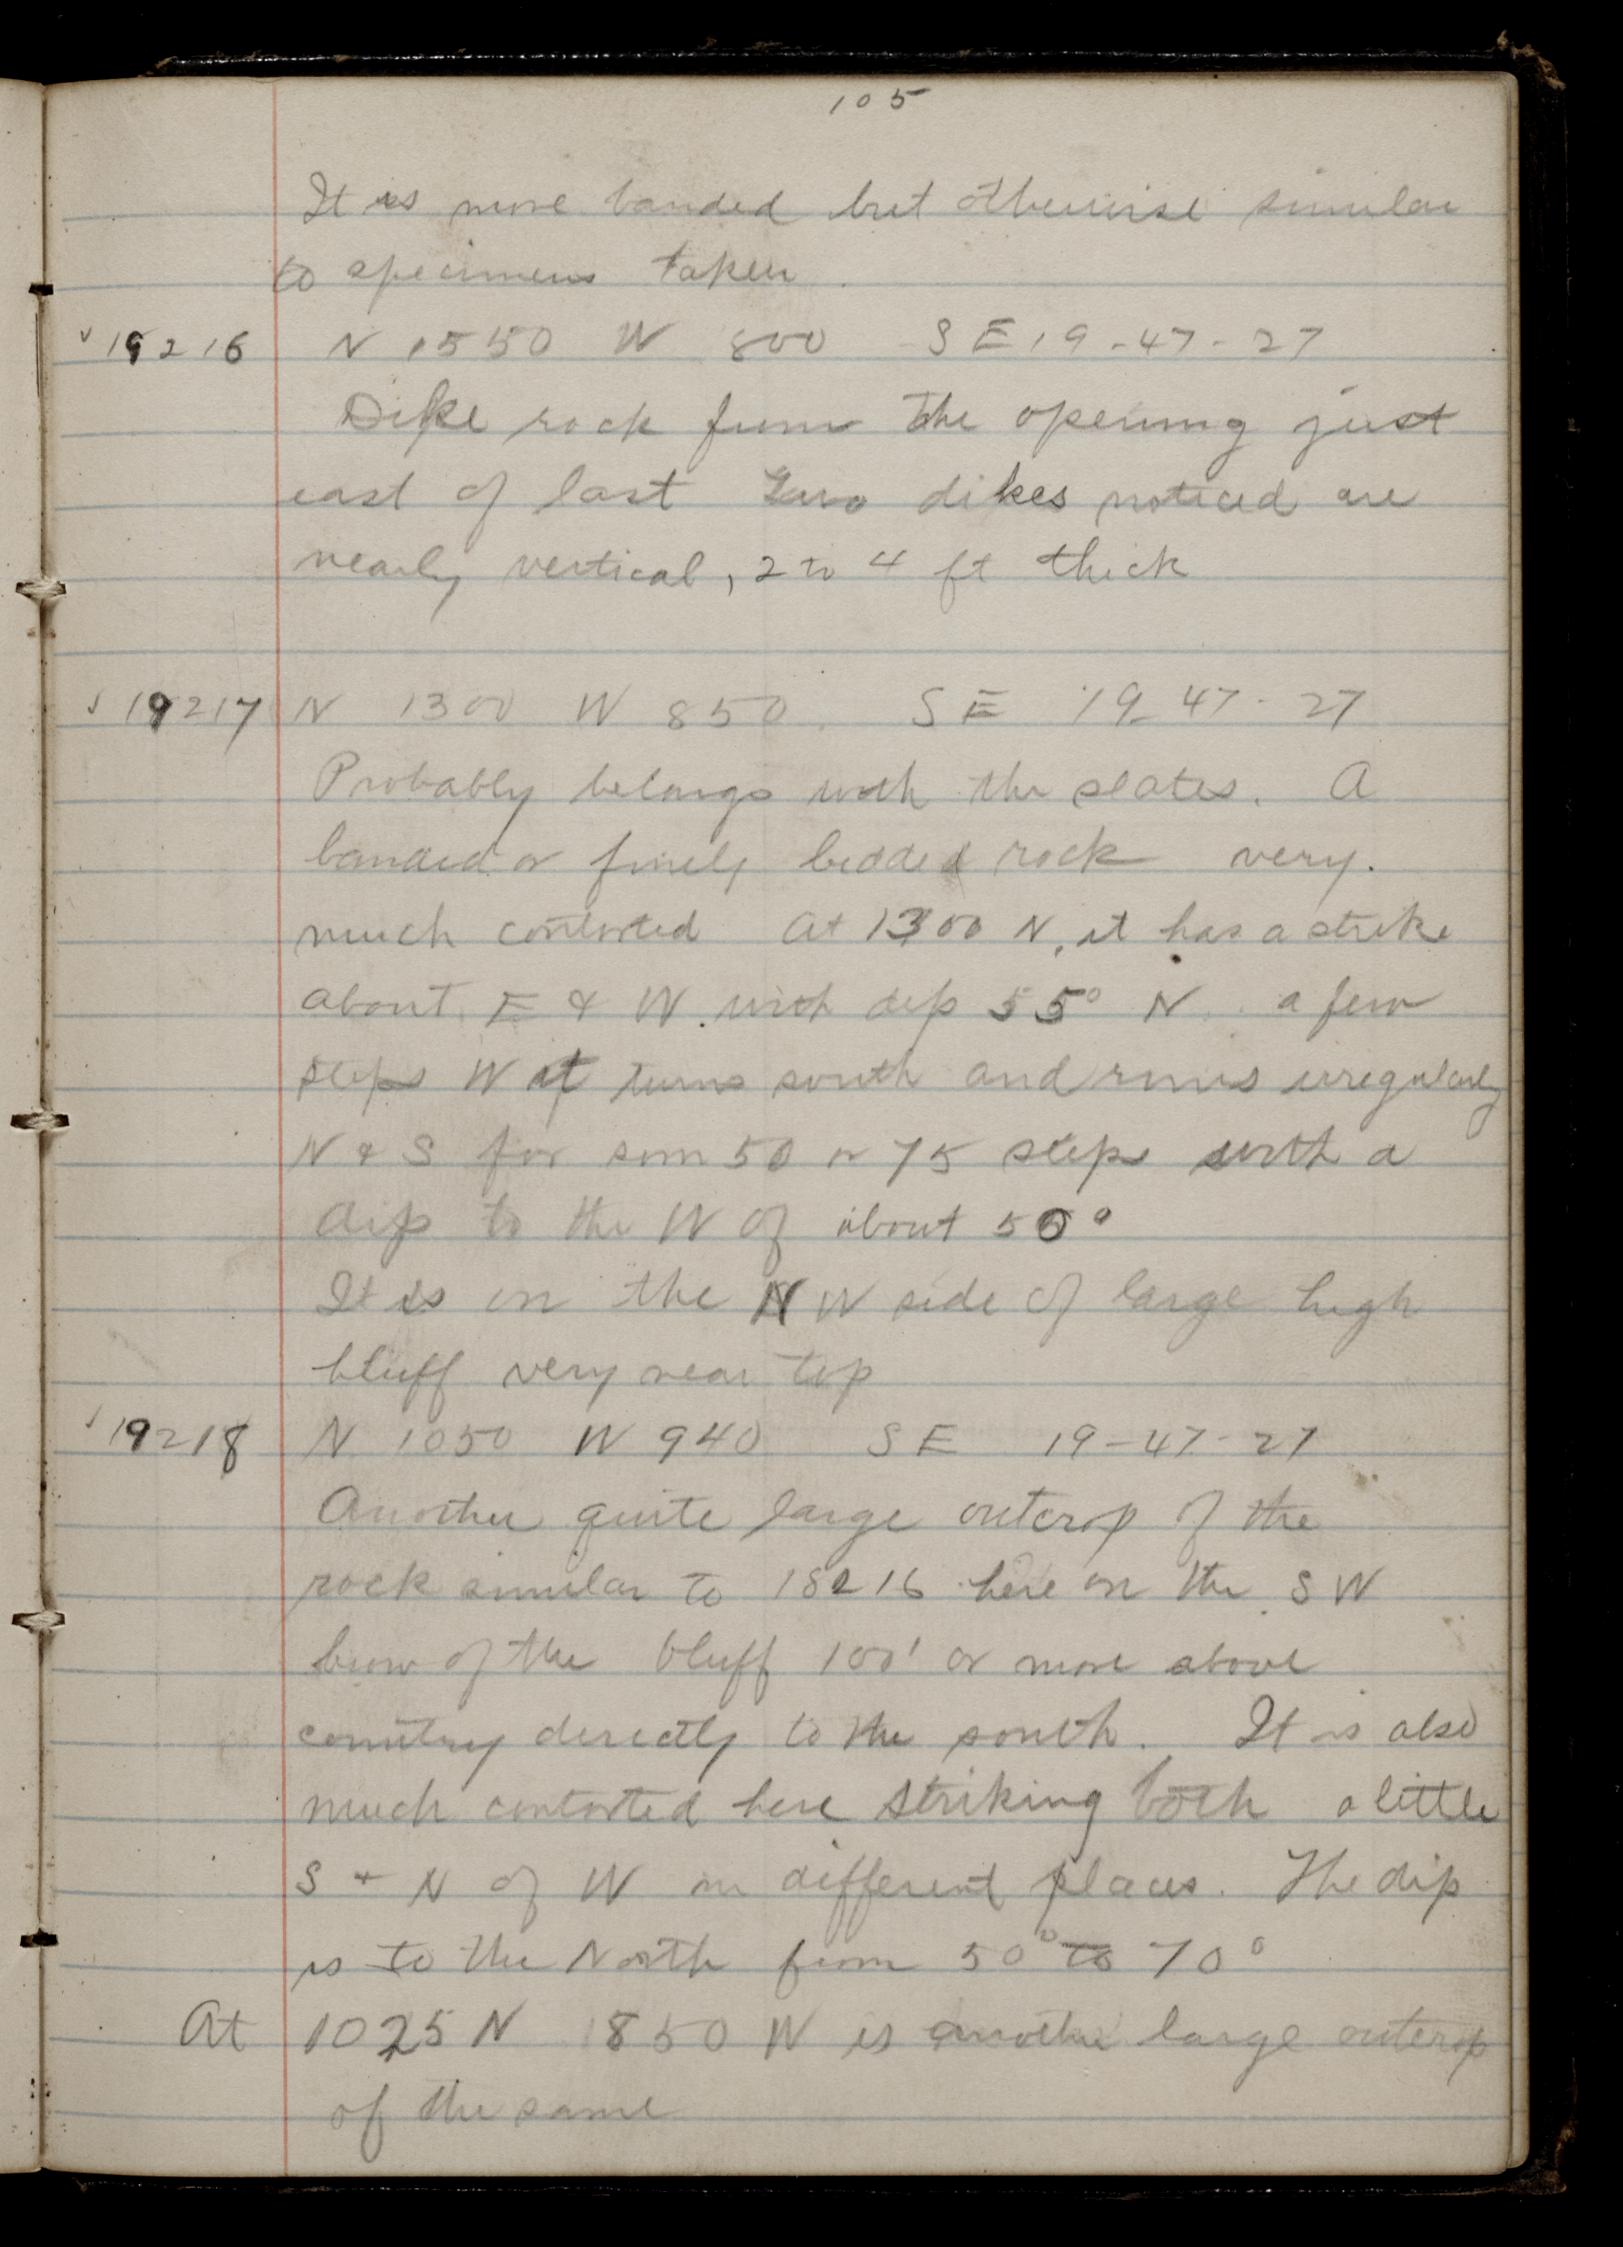 105
It is more banded but otherwise similar
to specimens taken.
✓ 19216 N 1550 W 800 SE 19-47-27
Dike rock from the opening just
east of last Two dikes noticed are
nearly vertical, 2 to 4 ft thick
✓ 19217 N 1300 W 850 SE 19-47-27
Probably belongs with the slates. A
banded or finely bedded rock very
much contorted At 1300 N, it has a strike
about E & W. with dip 55° N. a few
steps W it turns south and runs irregularly
N & S for som 50 or 75 steps with a
dip to the W of about 50°
It is on the NW side of large high
bluff very near top
✓ 19218 N 1050 W 940 SE 19-47-27
Another quite large outcrop of the
rock similar to 18216 here on the SW
brow of the bluff 100' or more above
country directly to the south. It is also
much contorted here striking both a little
S + N of W in different places. The dip
is to the North from 50° to 70°
At 1025 N 1850 W is another large outcrop
of the same